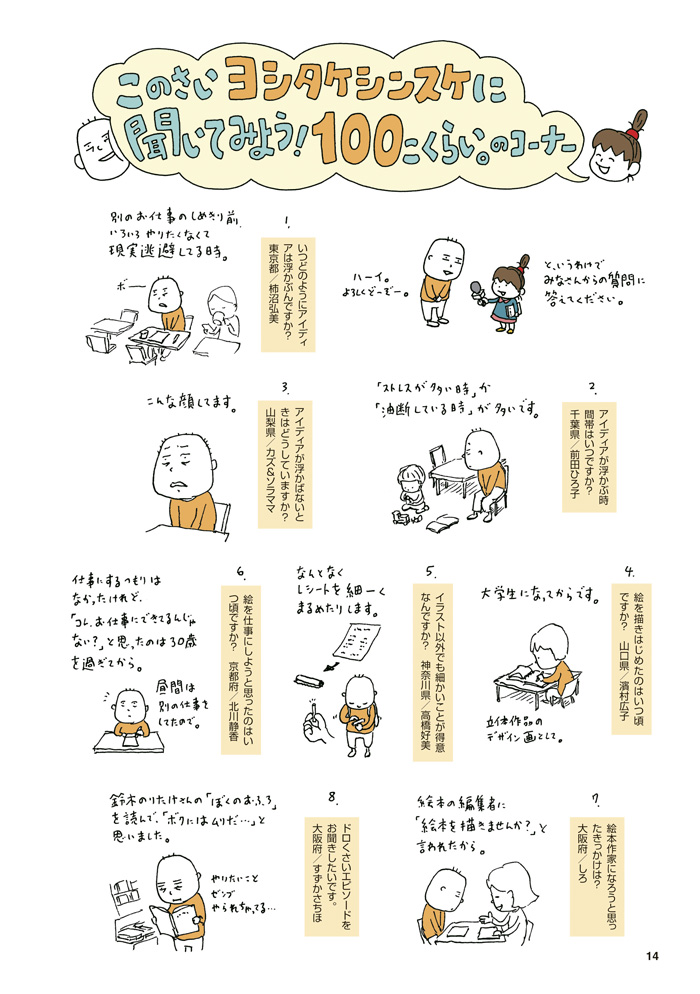 このさい ヨシタケシンスケに
聞いてみよう！100こくらい。のコーナー
と、いうわけで
みなさんからの質問に
答えてください。
ハーイ。
よろしくどーぞー。
1.
いつどのようにアイディ
アは浮かぶんですか？
東京都／柿沼弘美
別のお仕事のしめきり前、
いろいろやりたくなくて
現実逃避してる時。
ボー
2.
アイディアが浮かぶ時
間帯はいつですか？
千葉県／前田ひろ子
「ストレスが多い時」か
「油断している時」が多いです。
3.
アイディアが浮かばないと
きはどうしていますか？
山梨県／カズ&ソラママ
こんな顔してます。
4.
絵を描きはじめたのはいつ頃
ですか？ 山口県／濱村広子
大学生になってからです。
立体作品の
デザイン画として。
5.
イラスト以外でも細かいことが得意
なんですか？ 神奈川県／高橋好美
なんとなく
レシートを細ーく
まるめたりします。
6.
絵を仕事にしようと思ったのはい
つ頃ですか？ 京都府／北川静香
仕事にするつもりは
なかったけれど、
「コレ、お仕事にできてるんじゃ
ない？」と思ったのは30歳
を過ぎてから。
昼間は
別の仕事を
してたので。
7.
絵本作家になろうと思っ
たきっかけは？
大阪府／しろ
絵本の編集者に
「絵本を描きませんか？」と
言われたから。
8.
ドロくさいエピソードを
お聞きしたいです。
大阪府／すずかさちほ
鈴木のりたけさんの「ぼくのおふろ」
を読んで、「ボクにはムリだ…」と
思いました。
やりたいこと
ゼンブ
やられちゃってる…
14